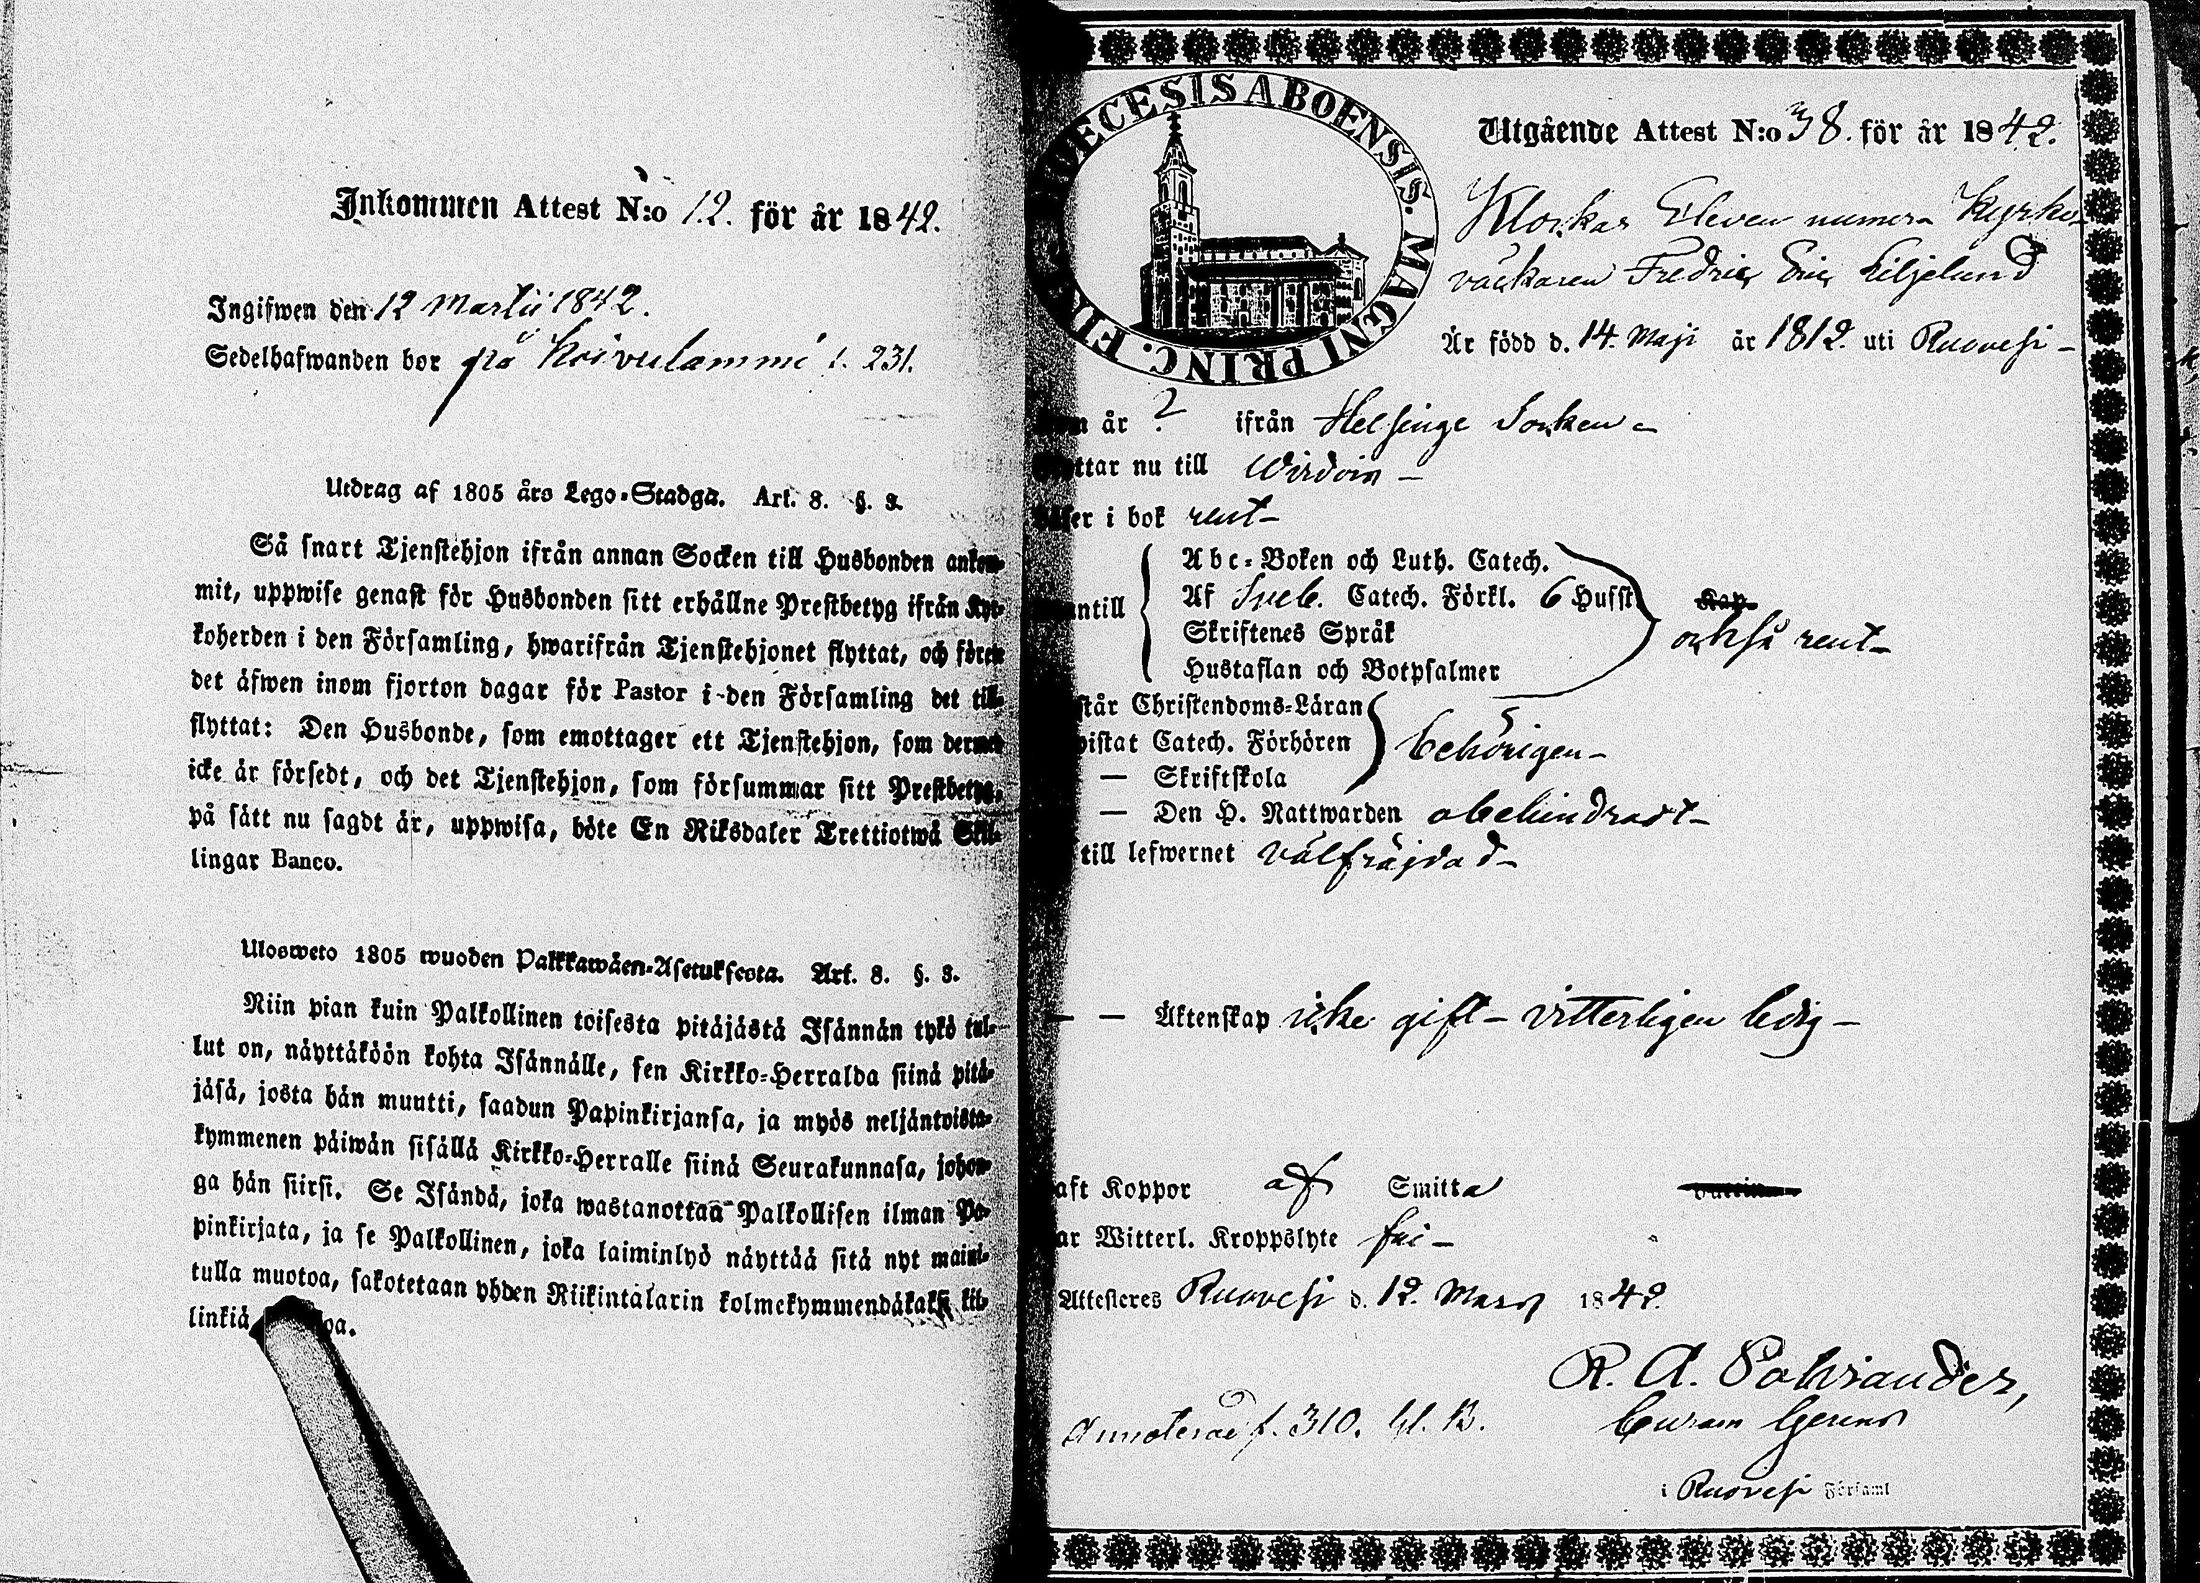 Inkommen Attest N:o 12. för år 1842.
Ingifwen den 12 Martii 1842.
Sedelhafwanden bor på Koivulammi p. 231.
Utdrag af 1805 års Lego-Stadga. Art. 8. §. 3.
Så snart Tjenstehjon ifrån annan Socken till Husbonden ankom-
mit, uppwise genast för Husbonden sitt erhållne Prestbetyg ifrån Kyr-
koherden i den Församling, hwarifrån Tjenstehjonet flyttat, och förete
det äfwen inom fjorton dagar för Pastor i den Församling det till-
flyttat: Den Husbonde, som emottager ett Tjenstehjon, som dermed
icke är försedt, och det Tjenstehjon, som försummar sitt Prestbetyg,
på sätt nu sagdt är, uppwisa, böte En Riksdaler Trettiotwå Skil-
lingar Banco.
Ulosweto 1805 wuoden Palkkawäen-Asetuksesta. Art. 8. §. 3.
Niin pian kuin Palkollinen toisesta pitäjästä Isännän tykö tul-
lut on, näyttäköön kohta Isännälle, sen Kirkko-Herralda siinä pitä-
jäsä, josta hän muutti, saadun Papinkirjansa, ja myös neljäntoista-
kymmenen päiwän sisällä Kirkko-Herralle siinä Seurakunnasa, johon-
ga hän siirsi. Se Isändä, joka wastanottaa Palkollisen ilman Pa-
pinkirjata, ja se Palkollinen, joka laiminlyö näyttää sitä nyt maini-
tulla muotoa, sakotetaan yhden Riikintalarin kolmekymmendäkaksi kil-
linkiä oa.
DIOECESIS ABOENSIS. MAGNI PRINC. FINL.
Utgående Attest N:o 38. för år 1842.
Klockar Eleven numera Kyrko-
väckaren Fredric Eric Liljelund
Är född d. 14. Maji år 1812. uti Ruovesi -
Kom år ? ifrån Helsinge Socken -
Flyttar nu till Wirdois -
Läser i bok rent -
Abc-Boken och Luth. Catech.
Utantill Af Sveb. Catech. Förkl. 6 Husst. Kap.
Skriftenes Språk också rent -
Hustaflan och Botpsalmer
står Christendoms-Läran
bistat Catech. Förhören behörigen -
— Skriftskola
— Den H. Nattwarden obehindradt -
till lefwernet välfräjdad -
— — Äktenskap icke gift - vitterligen ledig -
aft Koppor af Smitta
ar Witterl. Kroppslyte fri -
Attesteres Ruovesi d. 12. Mars 1842.
R. A. Polviander,
Curam Gerens
Annoterad f. 310. Gl. B.
i Ruovesi Församl